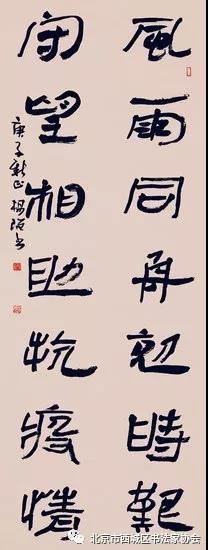 風雨同舟剋時艱
守望相助抗疫情
庚子新正楊书
北京市西城区书法家协会